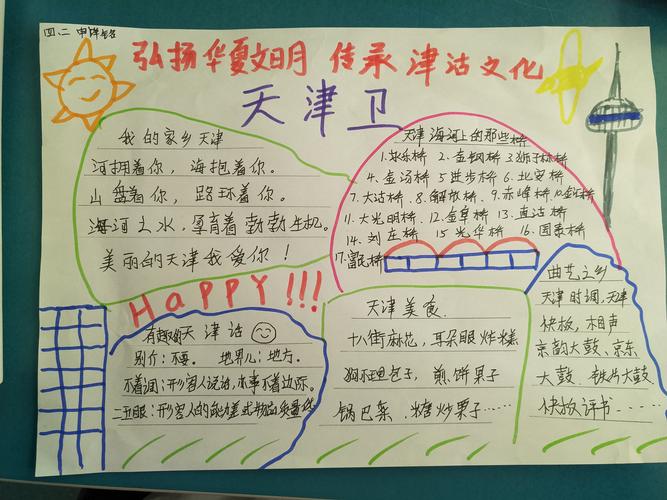 四.二
弘扬华夏文明 传承津沽文化
天津卫
我的家乡天津
河拥着你，海抱着你。
山盘着你，路环着你。
海河之水，孕育着勃勃生机。
美丽的天津我爱你！
HAPPY!!!
天津海河上的那些桥
1.永乐桥 2.金钢桥 3.狮子林桥
4.金汤桥 5.进步桥 6.北安桥
7.大沽桥.8.解放桥.9.赤峰桥.10.金汇桥
11.大光明桥.12.金阜桥 13.直沽桥
14.刘庄桥 15光华桥 16.国泰桥
17.富民桥
有趣的天津话
别介：不要。 地界儿：地方。
不着调：形容人说话，办事不着边际。
二五眼：形容人的能力差或物品质量低
天津美食
十八街麻花，耳朵眼炸糕
狗不理包子，煎饼果子
锅巴菜、糖炒栗子……
曲艺之乡
天津时调，天津
快板，相声
京韵大鼓、京东
大鼓、铁片大鼓
快板评书……